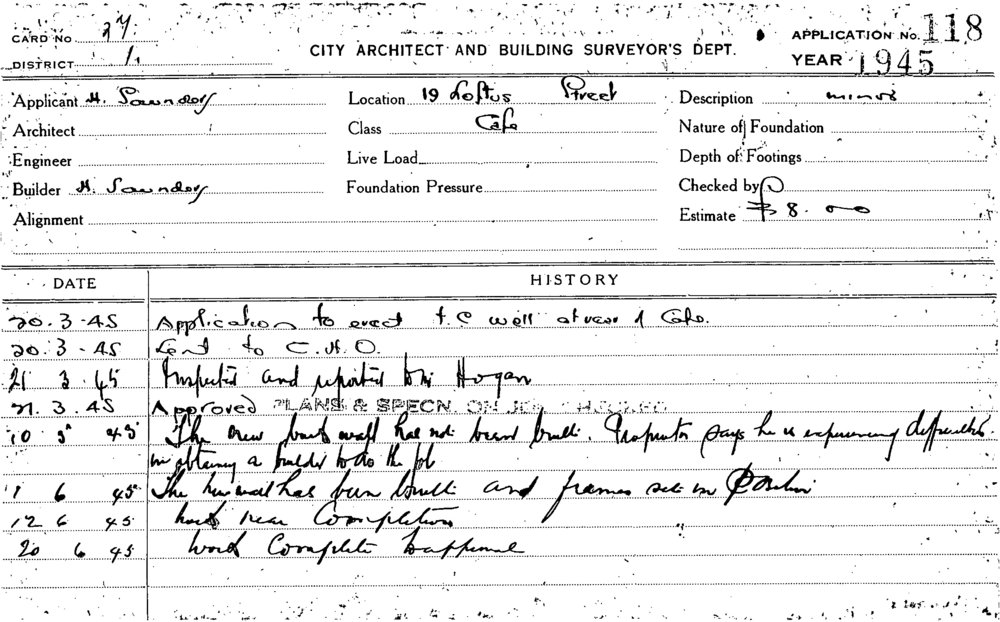 CARD No 27.
DISTRICT 1.
CITY ARCHITECT AND BUILDING SURVEYOR'S DEPT.
APPLICATION No. 118
YEAR 1945
Applicant H. Saunders
Location 19 Loftus Street
Description minor
Architect
Class Cafe
Nature of Foundation
Engineer
Live Load
Depth of Footings
Builder H. Saunders
Foundation Pressure
Checked by
Alignment
Estimate £ 8.
DATE HISTORY
20.3.45 Application to erect t.c wall at rear of Cafe.
20.3.45 Sent to C.H.O.
21 3.45 Inspected and reported to Mr Hogan
21.3.45 Approved PLANS & SPECN. ON JOB CHECKED
10 5 45 The new wall has not been built. Proprietor says he is experiencing difficulties
in obtaining a builder to do the job
1 6 45 The new wall has been built and frames set in position
12 6 45 work near Completion
20 6 45 work Complete to approval